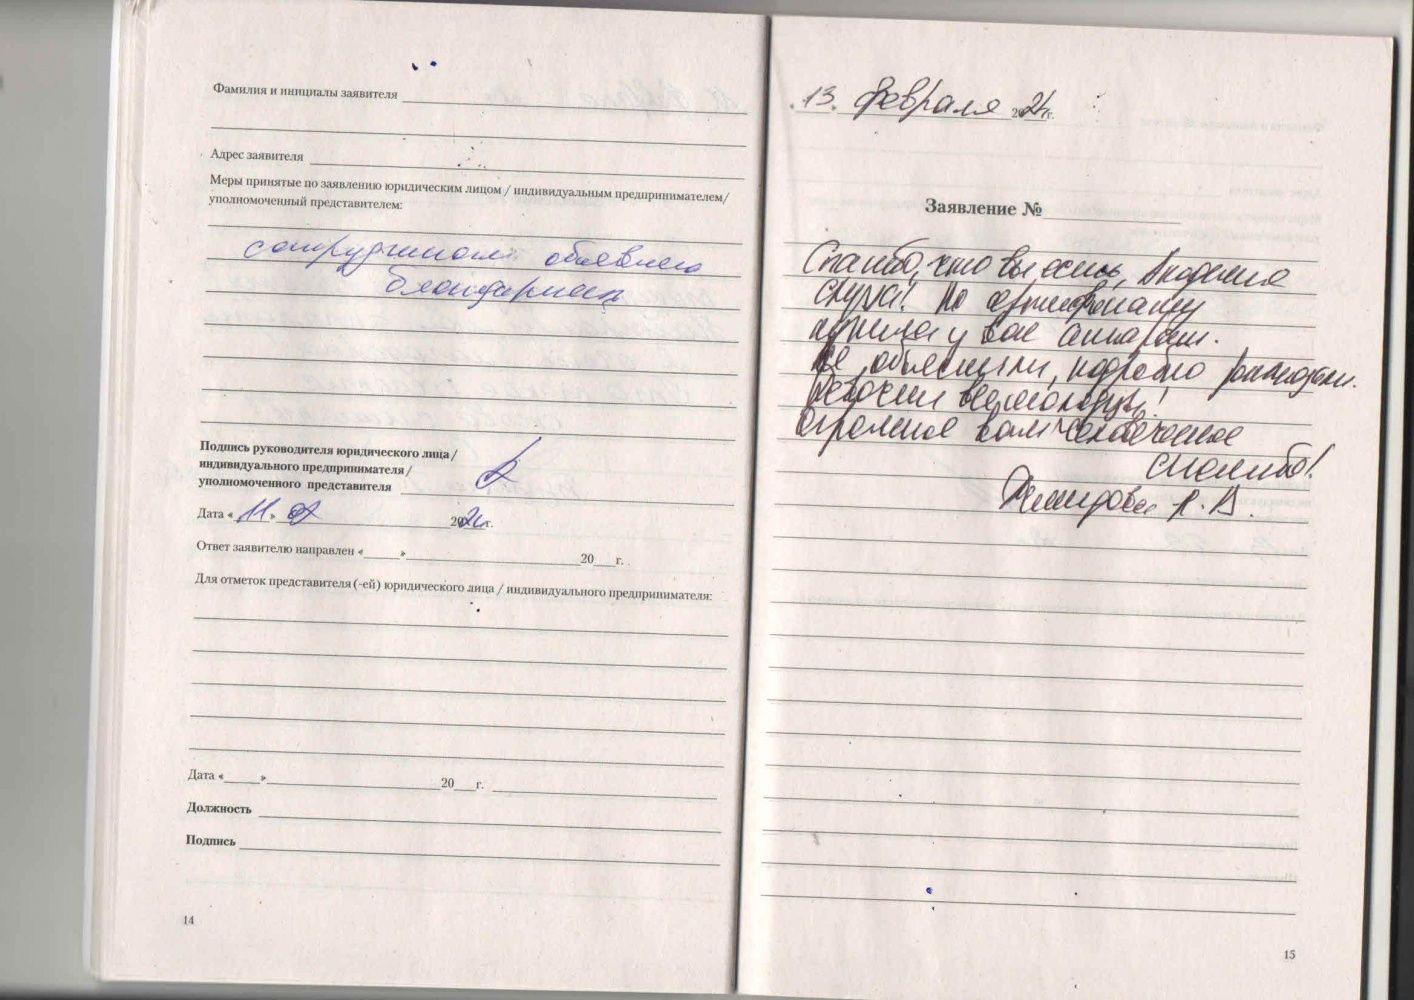 Фамилия и инициалы заявителя
Адрес заявителя
Меры принятые по заявлению юридическим лицом / индивидуальным предпринимателем/
уполномоченный представителем:
сотрудникам объявлена
благодарность
Подпись руководителя юридического лица/
индивидуального предпринимателя/
уполномоченного представителя
Дата «11» 02 2021г.
Ответ заявителю направлен «____»____20___г.
Для отметок представителя (-ей) юридического лица / индивидуального предпринимателя:
Дата «____»____20___г.
Должность
Подпись
14
13. февраля 2021г.
Заявление №
Спасибо, что вы есть, Академия
слуха! По
купила у вас аппарат.
Все объяснили, подробно рассказали.
Девочки вы молодцы!
Огромное вам человеческое
спасибо!
15